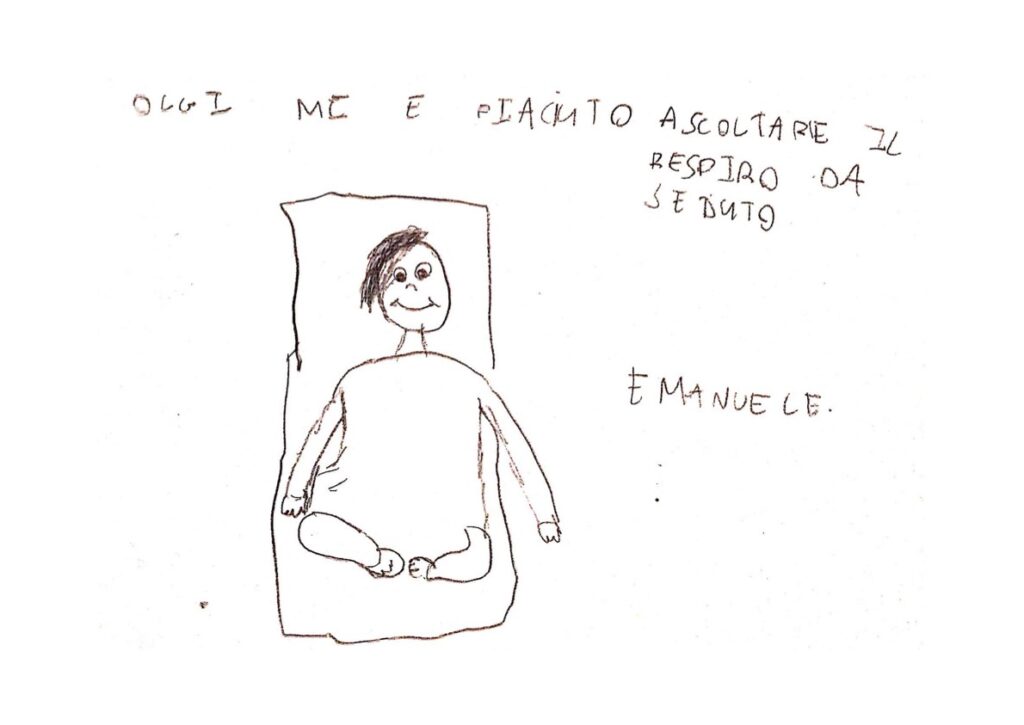 OGGI ME E PIACIUTO ASCOLTARE IL
RESPIRO DA
SEDUTO
EMANUELE.